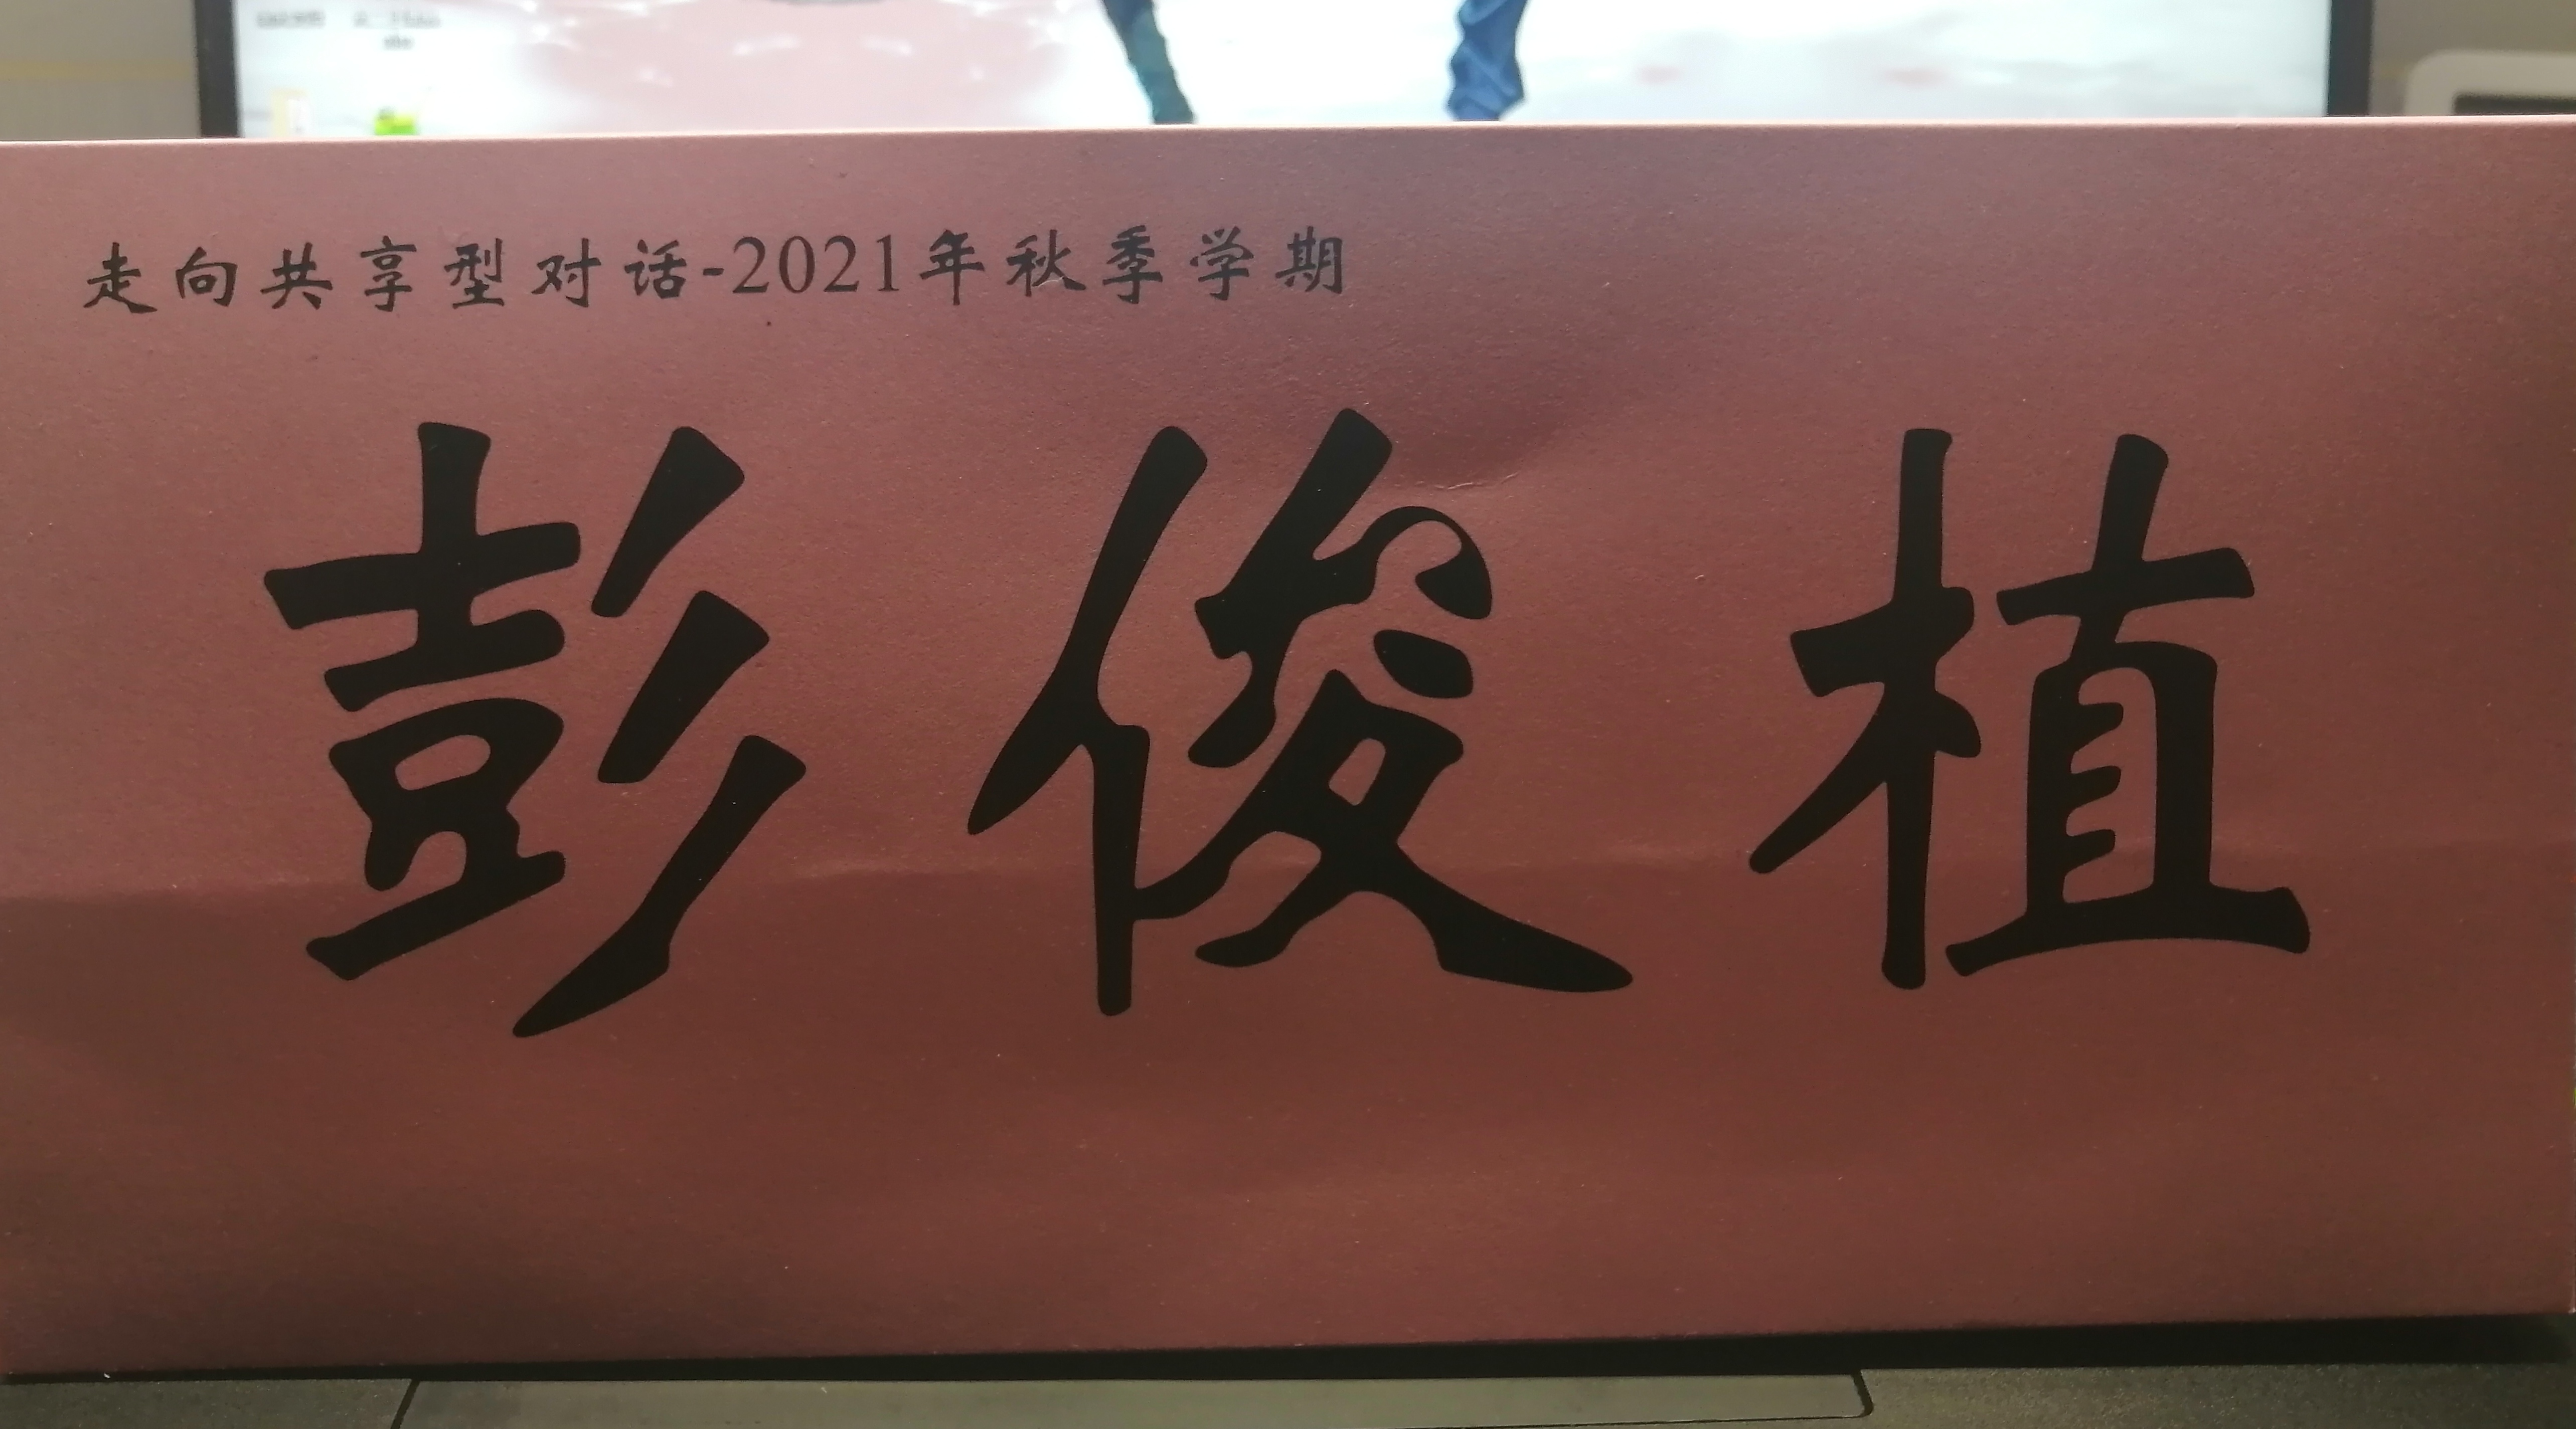 走向共享型对话-2021年秋季学期
彭俊植